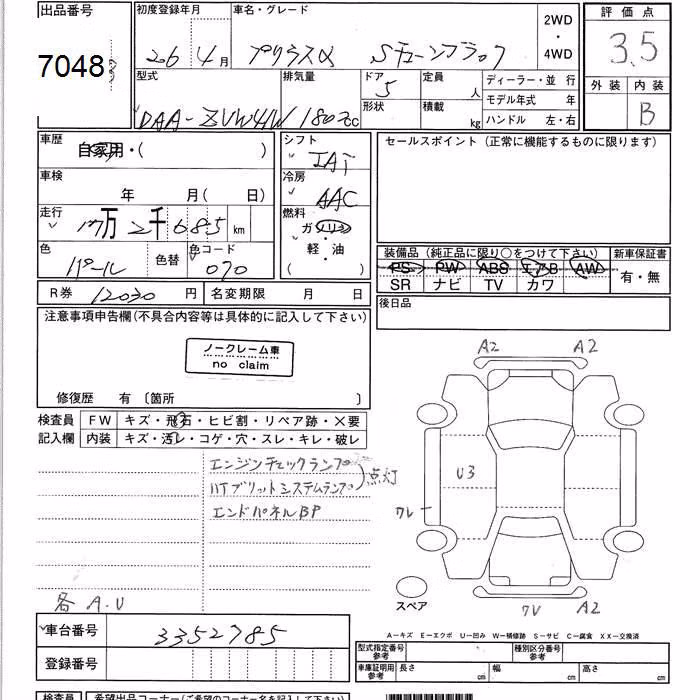 出品番号 初度登録年月 車名・グレード 2WD・4WD 評価点
7048 26 4月 プリウスα Sチューンブラック 3.5
型式 排気量 ドア 定員 ディーラー・並行 外装 内装
5 人 モデル年式 年 B
DAA-ZVW41W 1800cc 形状 積載 kg ハンドル 左・右
車歴 自家用・( ) シフト セールスポイント (正常に機能するものに限ります)
IAT
車検 年 月( 日) 冷房 AAC
走行 17万2千685km 燃料 ガソリン
軽・油
( )
色 パール 色替 色コード 070
装備品 (純正品に限り○をつけて下さい) 新車保証書
PS PW ABS エアB AW 有・無
SR ナビ TV カワ
R券 12030円 名変期限 月 日 後日品
注意事項申告欄(不具合内容等は具体的に記入して下さい)
ノークレーム車
no claim
修復歴 有 〔箇所 〕
A2 A2
検査員 FW キズ・飛石・ヒビ割・リペア跡・×要
記入欄 内装 キズ・汚レ・コゲ・穴・スレ・キレ・破レ
エンジンチェックランプ
点灯
ハイブリットシステムランプ
エンドパネルBP
U3
ワレ
各 A.U
スペア
ワレ A2
車台番号 3352785
A-キズ E-エクボ U-凹み W-補修跡 S-サビ C-腐食 XX-交換済
登録番号 型式指定番号 参考 種別区分番号 参考
車庫証明用 参考 長さ cm 幅 cm 高さ cm
検査員 希望出品コーナー(ご希望のコーナー名を記入して下さい)